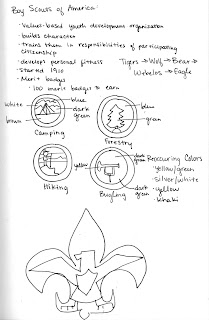 Boy Scouts of America:
· Values-based youth development organization
· builds character
· trains them in responsibilities of participating
citizenship
· develop personal fitness
· Started 1910
· Merit badges
· 100 merit badges to earn
Tigers → Wolf → Bear →
Webelos → Eagle
white
blue
dark
green
brown
Camping
blue
green
Forestry
yellow
Hiking
dark
green
dark
green
Bugling
Reoccuring Colors
· Yellow/green
· Silver/white
· yellow
· khaki